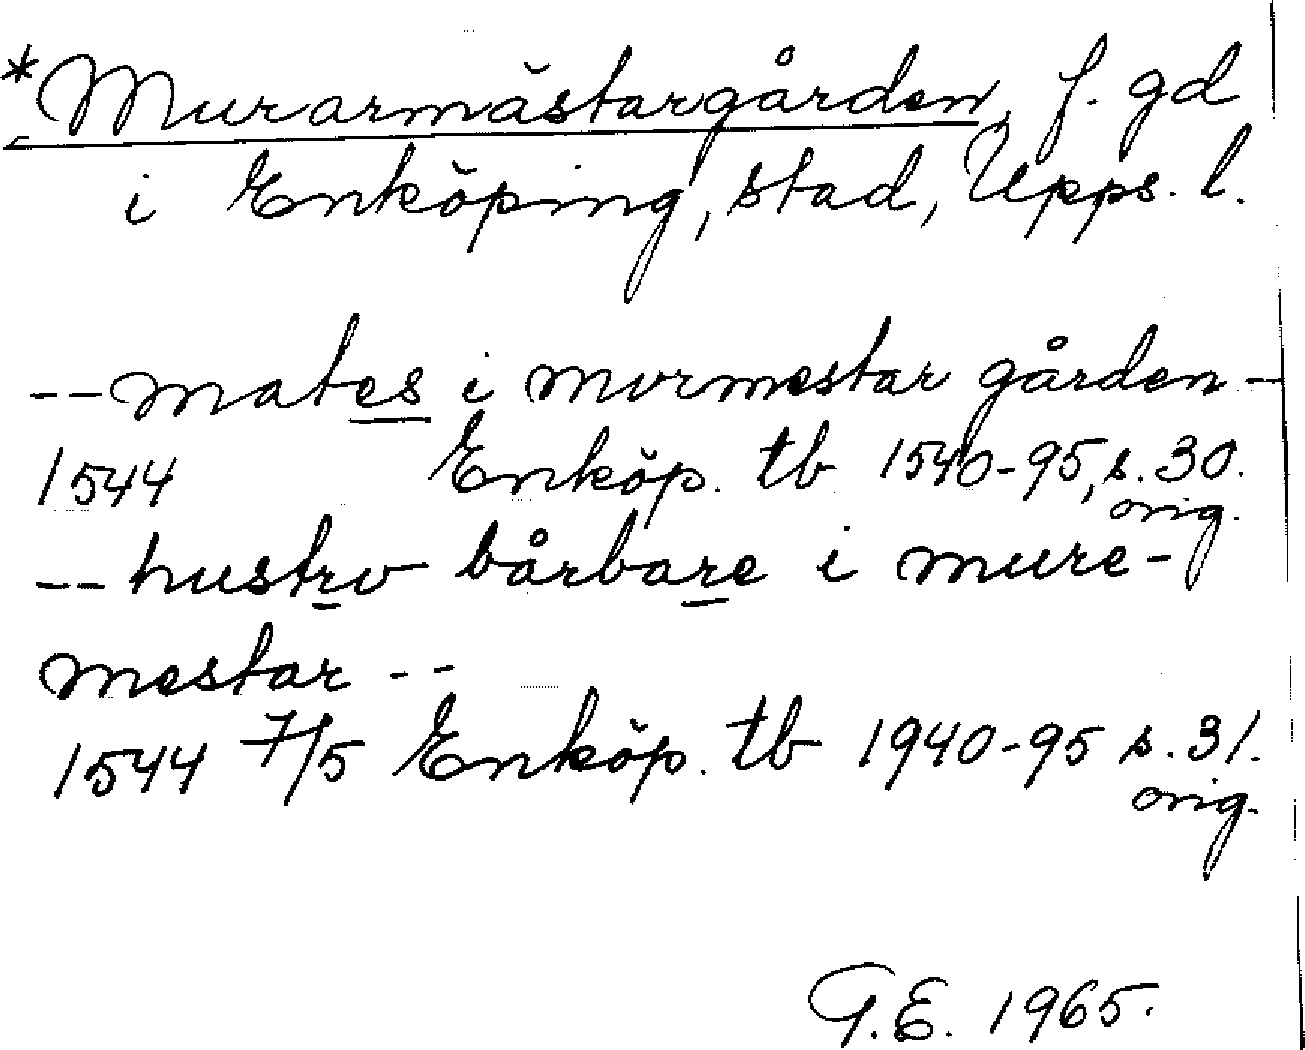 *Murarmästargården, f. gd
i Enköping, stad, Upps. l.
-- mates i mvrmestar gården --
1544 Enköp. tb 1540-95, s. 30.
orig.
-- hustrv bårbare i mure-
mestar --
1544 7/5 Enköp. tb 1940-95 s. 31.
orig.
G.E. 1965.